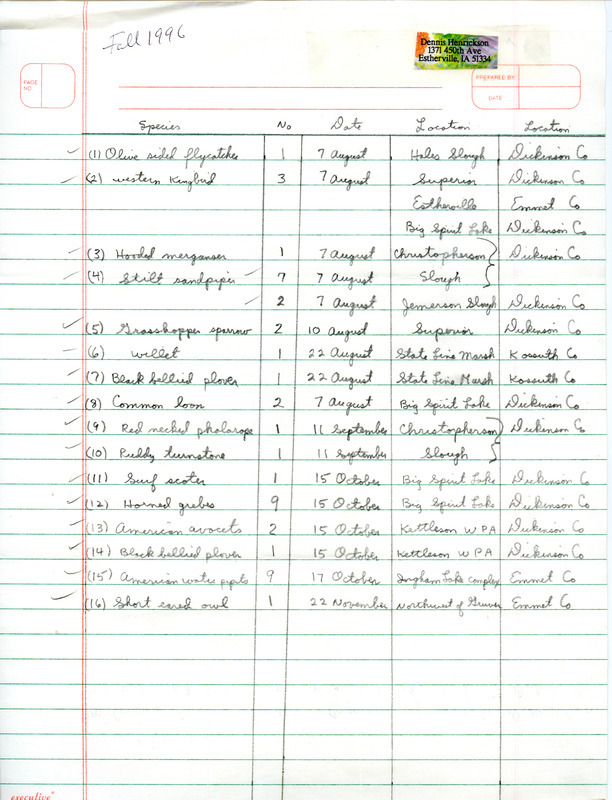 Fall 1996
Dennis Henrickson
1371 450th Ave
Estherville, IA 51334
PAGE NO
PREPARED BY
DATE
Species No Date Location Location
(1) Olive sided flycatcher 1 7 August Hales Slough Dickinson Co
(2) western Kingbird 3 7 August Superior Dickinson Co
Estherville Emmet Co
Big Spirit Lake Dickinson Co
(3) Hooded merganser 1 7 August Christopherson Dickinson Co
(4) Stilt sandpiper 7 7 August Slough
2 7 August Jemerson Slough Dickinson Co
(5) Grasshopper sparrow 2 10 August Superior Dickinson Co
(6) willet 1 22 August State Line Marsh Kossuth Co
(7) Black bellied plover 1 22 August State Line Marsh Kossuth Co
(8) Common loon 2 7 August Big Spirit Lake Dickinson Co
(9) Red necked phalarope 1 11 September Christopherson Dickinson Co
(10) Ruddy turnstone 1 11 September Slough
(11) Surf scoter 1 15 October Big Spirit Lake Dickinson Co
(12) Horned grebes 9 15 October Big Spirit Lake Dickinson Co
(13) American avocets 2 15 October Kettleson WPA Dickinson Co
(14) Black bellied plover 1 15 October Kettleson WPA Dickinson Co
(15) American water pipits 9 17 October Ingham Lake complex Emmet Co
(16) Short eared owl 1 22 November Northwest of Gruver Emmet Co
executive